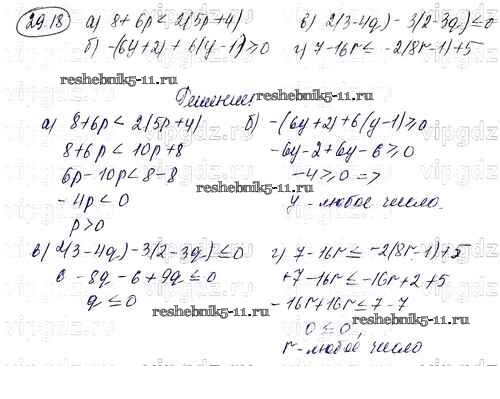 29.18 а) 8+6p < 2(5p+4) в) 2(3-4q)-3(2-3q)≤0
б) -(6y+2)+6(y-1)≥0 г) 7-16r≤ -2(8r-1)+5
reshebnik5-11.ru reshebnik5-11.ru
Решение:
а) 8+6p < 2(5p+4) б) -(6y+2)+6(y-1)≥0
8+6p < 10p+8 -6y-2+6y-6≥0
6p-10p<8-8 -4≥0 =>
reshebnik5-11.ru
-4p<0 y-любое число.
p>0
в) 2(3-4q)-3(2-3q)≤0 г) 7-16r≤ -2(8r-1)+5
6-8q-6+9q≤0 +7-16r≤-16r+2+5
q≤0 -16r+16r≤7-7
reshebnik5-11.ru
0≤0,
r-любое число